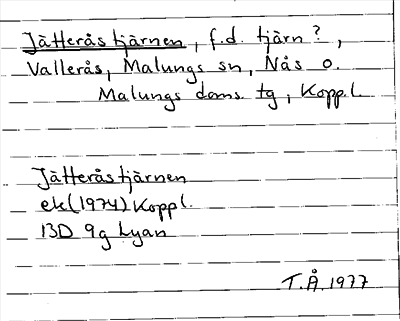 Jätteråstjärnen, f.d. tjärn?,
Vallerås, Malungs sn, Nås o.
Malungs doms. tg, Koppl.
Jätteråstjärnen
ek(1974) Koppl.
13D 9g Lyan
T.Å. 1977